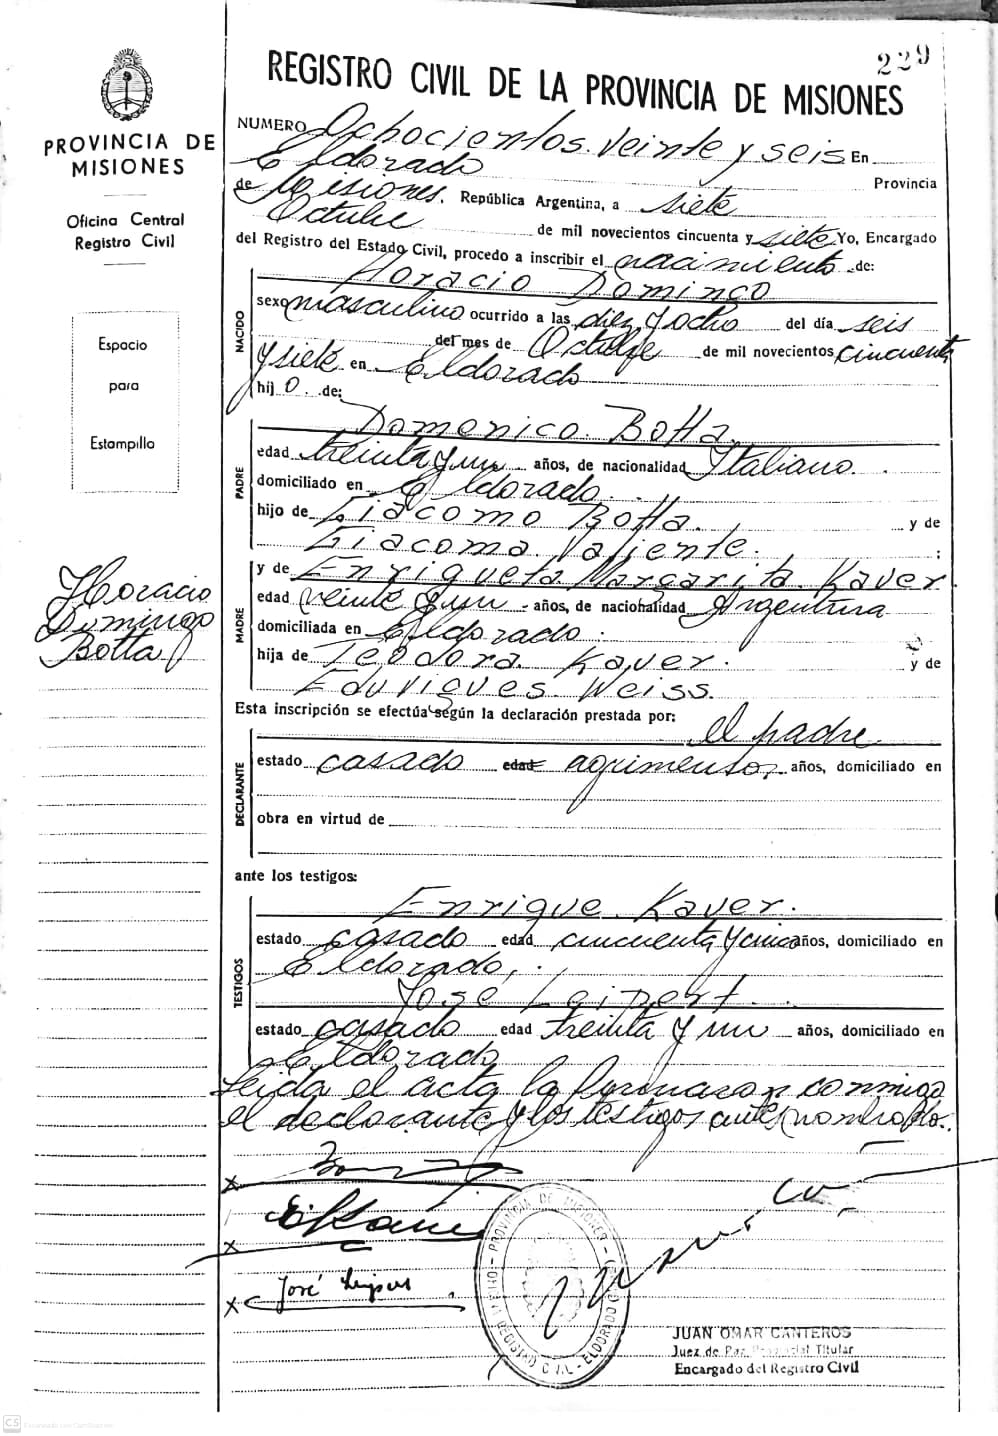 229
REGISTRO CIVIL DE LA PROVINCIA DE MISIONES
PROVINCIA DE
MISIONES
Oficina Central
Registro Civil
Espacio
para
Estampillo
Horacio
Domingo
Botta
NUMERO Ochocientos veinte y seis En
Eldorado Provincia
de Misiones. República Argentina, a siete
Octubre de mil novecientos cincuenta y siete Yo, Encargado
del Registro del Estado Civil, procedo a inscribir el nacimiento de:
Horacio Domingo
NACIDO
sexo masculino ocurrido a las diez y ocho del día seis
del mes de Octubre de mil novecientos cincuenta
y siete en Eldorado
hijo de:
Domenico Botta
PADRE
edad treinta y un años, de nacionalidad Italiano.
domiciliado en Eldorado.
hijo de Giacomo Botta, y de
Giacoma Valiente. ;
MADRE
y de Enriqueta Margarita Kaver
edad veinte y un años, de nacionalidad Argentina
domiciliada en Eldorado.
hija de Teodora Kaver. y de
Eduvigues Weiss.
Esta inscripción se efectúa según la declaración prestada por:
el padre
DECLARANTE
estado casado edad agrimensor años, domiciliado en
obra en virtud de
ante los testigos:
Enrique Kaver.
TESTIGOS
estado casado edad cincuenta y cinco años, domiciliado en
Eldorado,
José Leipert.
estado casado edad treinta y un años, domiciliado en
Eldorado
Leida el acta la firmaron conmigo
el declarante y los testigos ante nombrado.
X
X
X José
PROVINCIA DE MISIONES
REGISTRO CIVIL - ELDORADO
JUAN OMAR CANTEROS
Juez de Paz Provincial Titular
Encargado del Registro Civil
CS